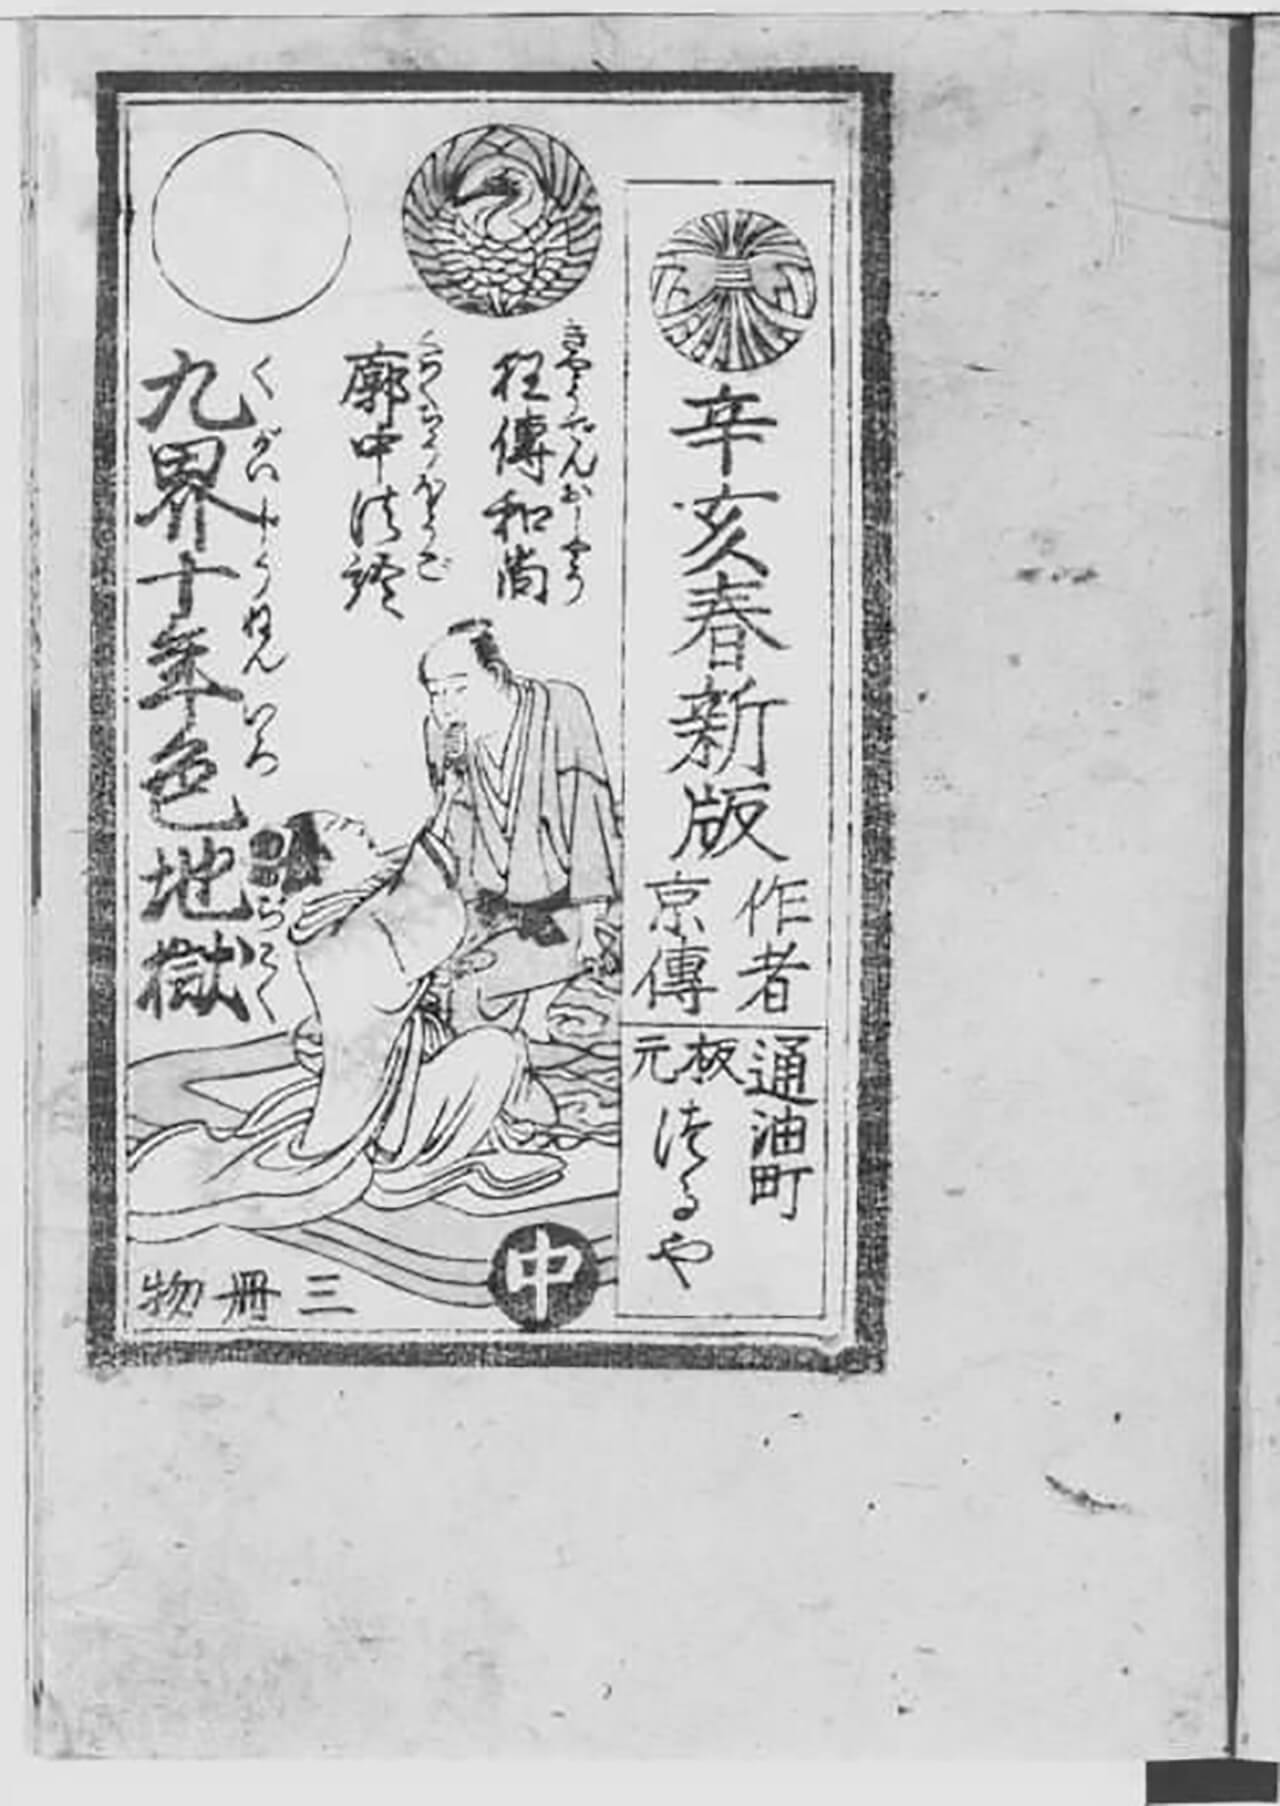 辛亥春新版
作者
京傳
通油町
板元
つるや
きやうでんおしやう
狂傳和尚
くるわちうほうご
廓中法語
くがい十うねんいろぢごく
九界十年色地獄
中
三冊物